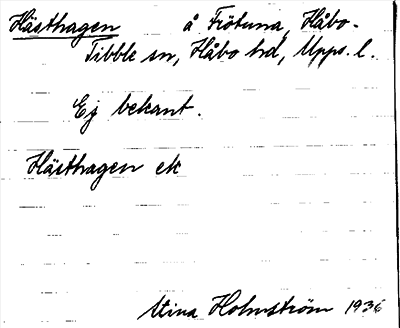 Hästhagen å Frötuna, Håbo-
Tibble sn, Håbo hd, Upps. l.
Ej bekant.
Hästhagen ek
Stina Holmström 1936